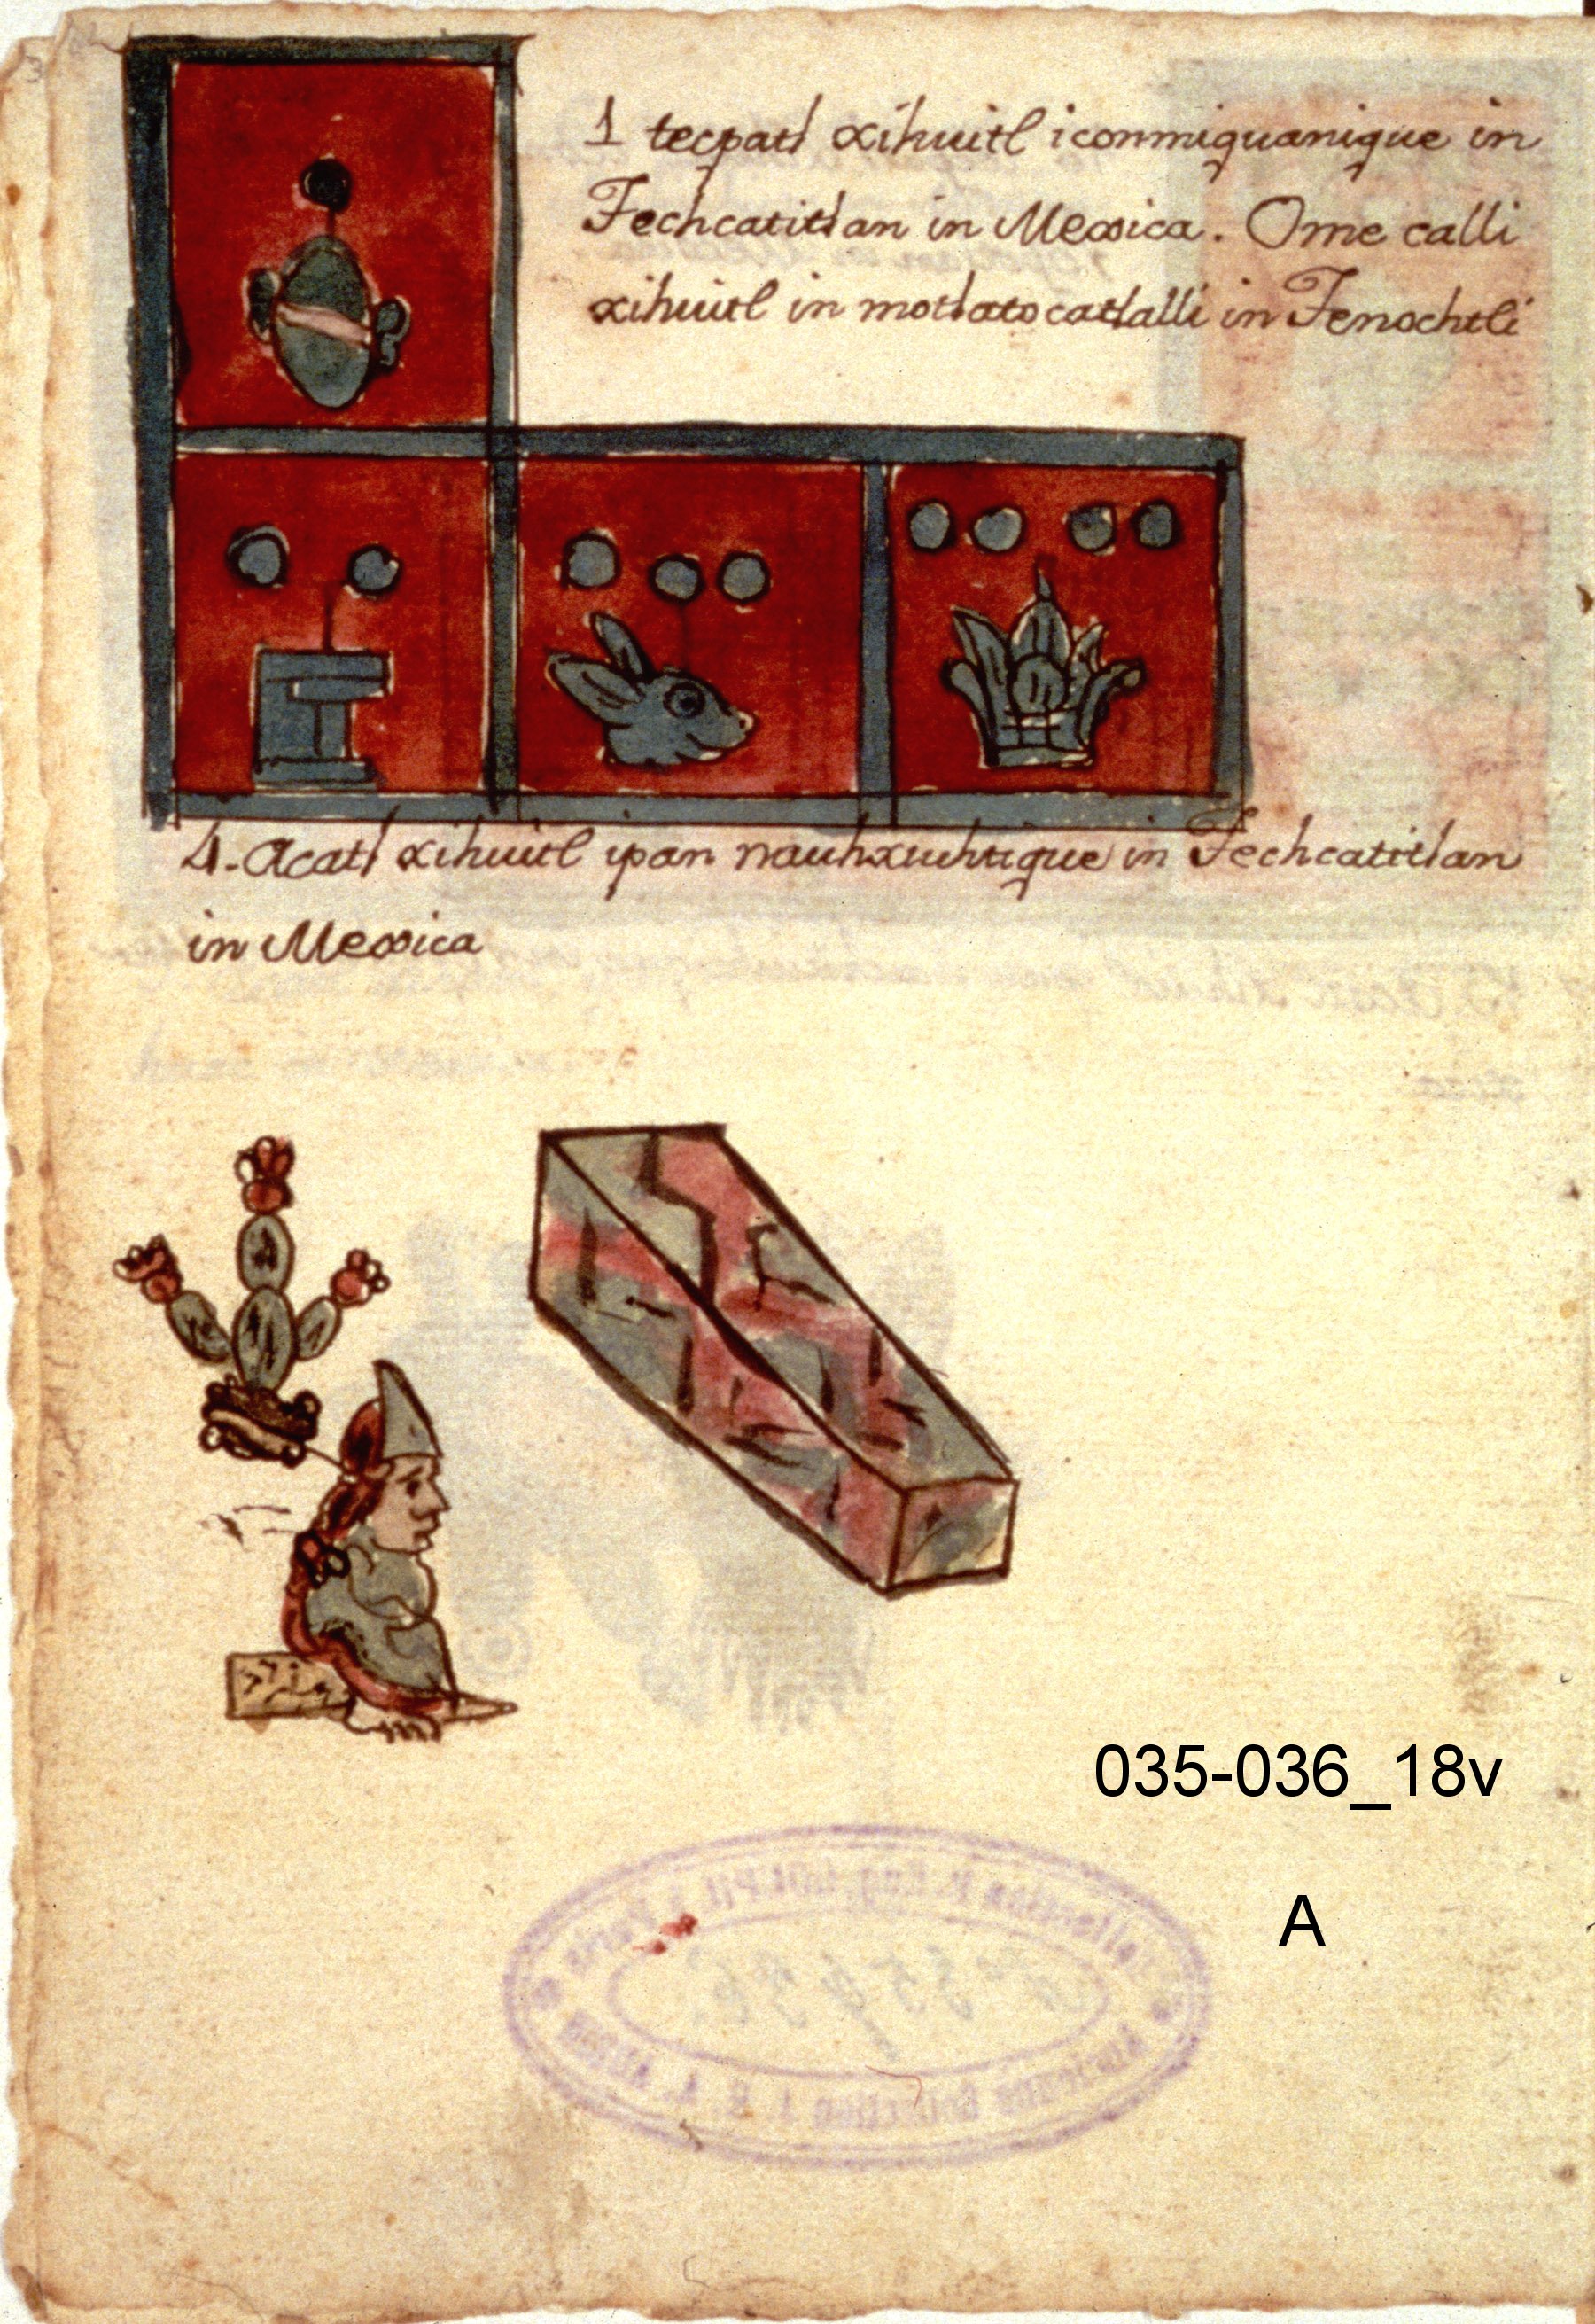 1 tecpatl xihuitl iconmiquanique in
Techcatitlan in Mexica. Ome calli
xihuitl in motlatocatlalli in Tenochtli
4. Acatl xihuitl ipan nauhxiuhtique in Techcatitlan
in Mexica
035-036_18v
A